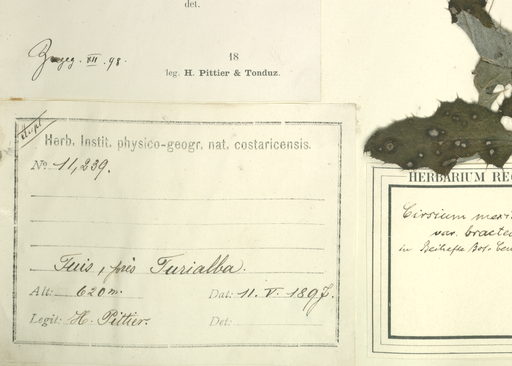 det.
XII. 98.
18
leg. H. Pittier & Tonduz.
Herb. Instit. physico-geogr. nat. costaricensis.
No 11,239.
Tuis, près Turialba.
Alt: 620 m. Dat: 11. V. 1897.
Legit: H. Pittier. Det:
HERBARIUM RE
Cirsium mexi
var. bracte
in Beihefte Bot. Cen